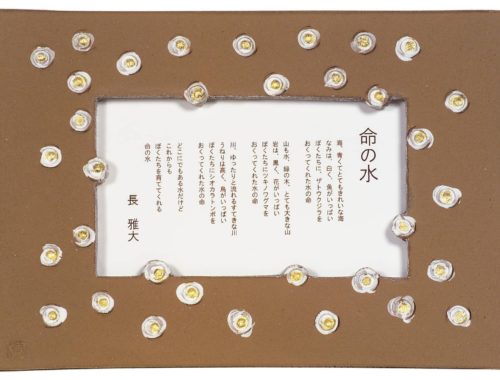 命の水
海、青くてとてもきれいな海
なみは、白く、魚がいっぱい
ぼくたちに、ザトウクジラを
おくってくれた水の命
山も水、緑の木、とても大きな山
岩は、黒く、花がいっぱい
ぼくたちにツキノワグマを
おくってくれた水の命
川、ゆったりと流れるすてきな川
うねりは高く、鳥がいっぱい
ぼくたちにシオカラトンボを
おくってくれた水の命
どこにでもある水だけど
これからも
ぼくたちを育ててくれる
命の水
長 雅大